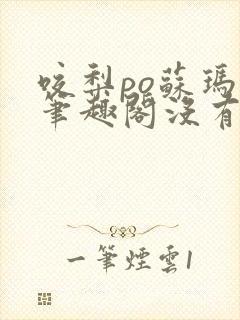 咬梨po蘇瑪
筆趣閣沒有
一筆煙雲1